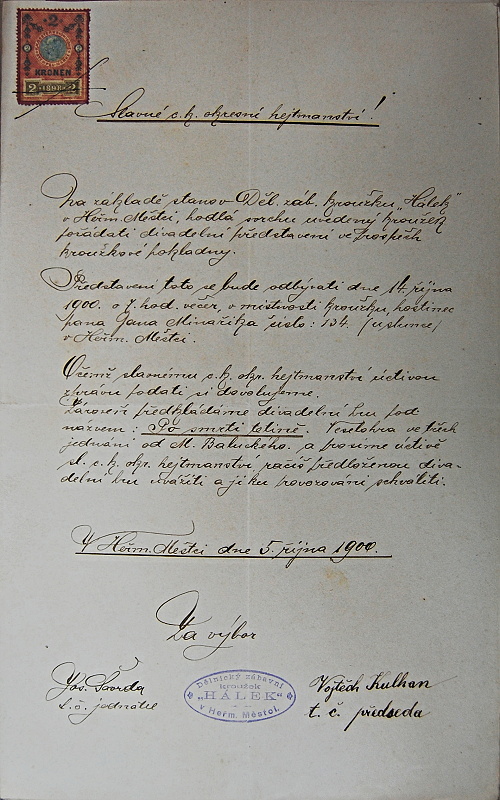 2
KRONEN
2 1898 2
Slavné c. k. okresní hejtmanství!
Na základě stanov Děl. záb. kroužku „Hálek“
v Heřm. Městci, hodlá svrchu uvedený kroužek
pořádati divadelní představení ve prospěch
kroužkové pokladny.
Představení toto se bude odbývati dne 14. října
1900 o 7. hod. večer, v místnosti kroužku, hostinec
pana Jana Minaříka číslo: 134.
v Heřm. Městci.
O čemž slavnému c. k. okr. hejtmanství uctivou
zprávu podati si dovolujeme.
Zároveň předkládáme divadelní hru pod
názvem: Po smrti tetině. Veselohra ve třech
jednání od M. Baluckého. a prosíme uctivě
sl. c. k. okr. hejtmanství račiž předloženou diva-
delní hru uvážiti a ji ku provozování schváliti.
V Heřm. Městci dne 5. října 1900.
Za výbor
Jos. Švorda
t. č. jednatel
Dělnický zábavní
kroužek
"HÁLEK"
v Heřm. Městci.
Vojtěch Kulhan
t. č. předseda